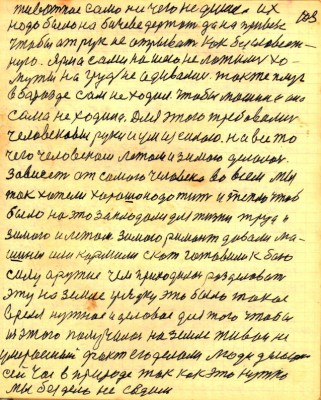 103
животное само ни чего не
их надо было на бичеве держат да на привязе
чтобы от рук не отрывать как бессловесн-
ного. Ярма сами на шею не ложили хо-
муты на груд не одивали также плуг
в борозде сам не ходил чтобы машина она
сама не ходила. Для этого требовались
человековы руки и ум и сила. на все то
чего человеком летом и зимою делалос.
Зависет от самого человека во всем мы
так хотели хорошо надо жит и тепло чтоб
было на это закладали для жизни труд и
зимою и летом зимою римонт давали ма-
шины или кормили скот готовили к бою
силу другие чем приходилос роздиловат
эту на земле это было такое
время нужное и деловое для того чтобы
из этого получилос на земле живое не
умирающий факт его делали люди
сей час в природе так как это нужно
мы без дела не сидим